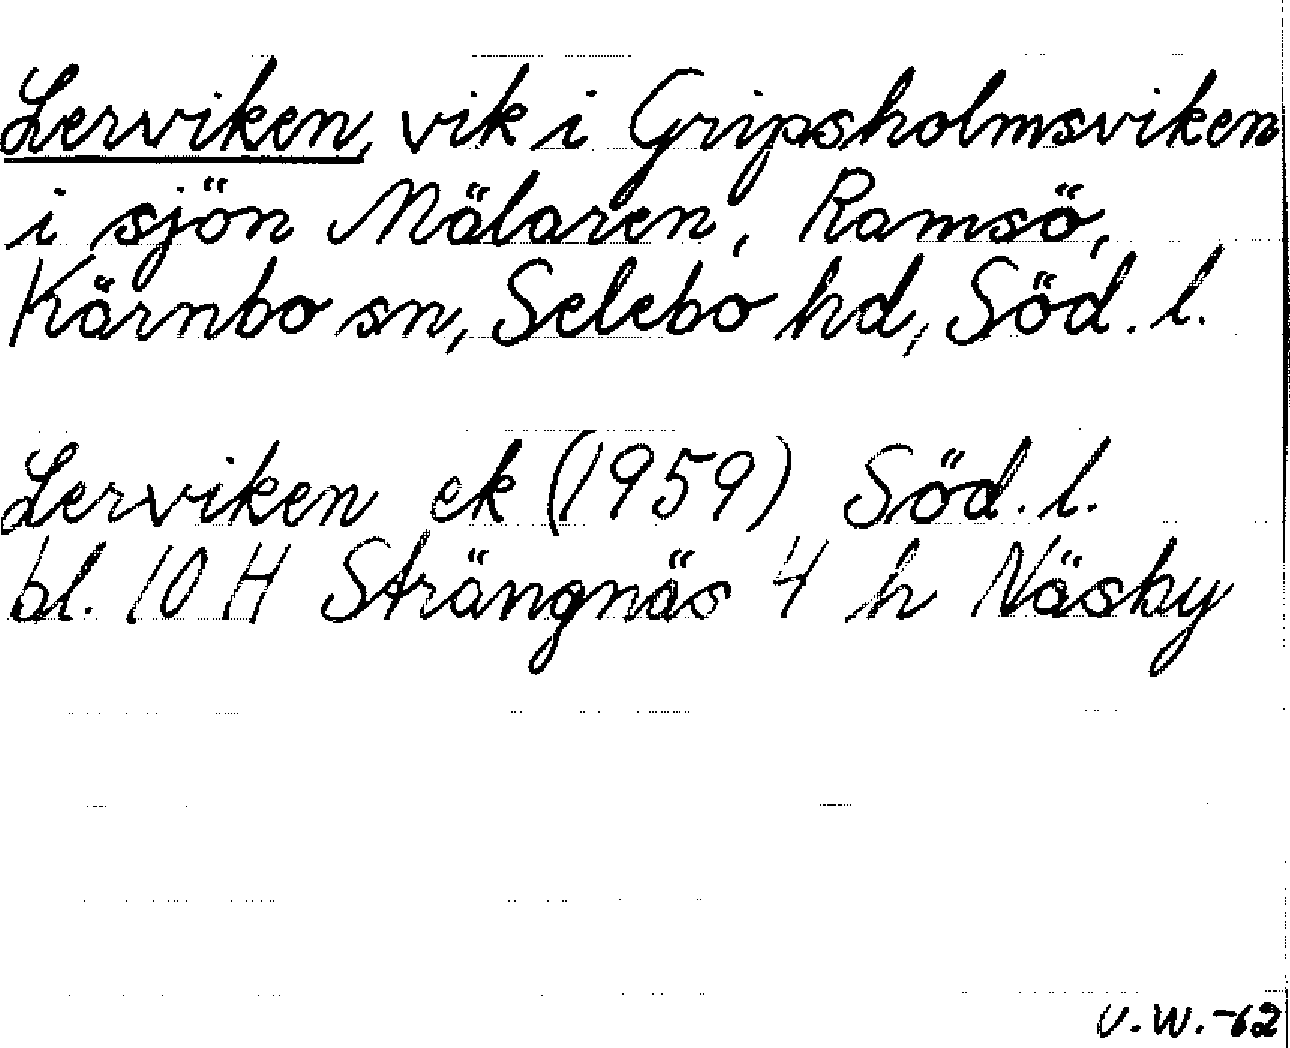 Lerviken, vik i Gripsholmsviken
i sjön Mälaren, Ramsö,
Kärnbo sn, Selebo hd, Söd. l.
Lerviken ek (1959) Söd. l.
bl. 10 H Strängnäs 4 h Näsby
U.W.-62